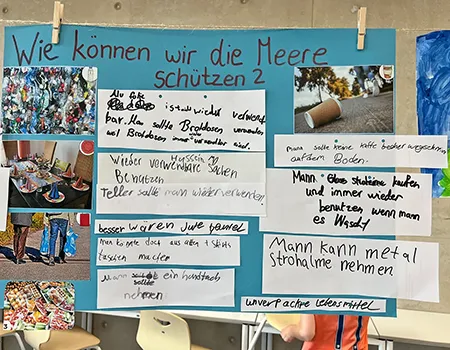 Wie können wir die Meere
schützen?
ist wieder verwert
bar. Man sollte Brotdosen verwenden
weil Brotdosen immer verwendbar sind.
Wieder verwenbare Sachen
Benutzen
Teller sollte mann wiederverwenden
besser wären Jute beutel
Man könnte doch aus alten T-Shirts
taschen machen
Mann ein hundnach
nehmen
mann sollte keine kaffe becher wegschmeisen
auf dem Boden.
Mann Glas strohalme kaufen
und immer wieder
benutzen wenn mann
es Wascht
Mann kann metal
Strohalme nehmen
unverpackte Lebensmittel